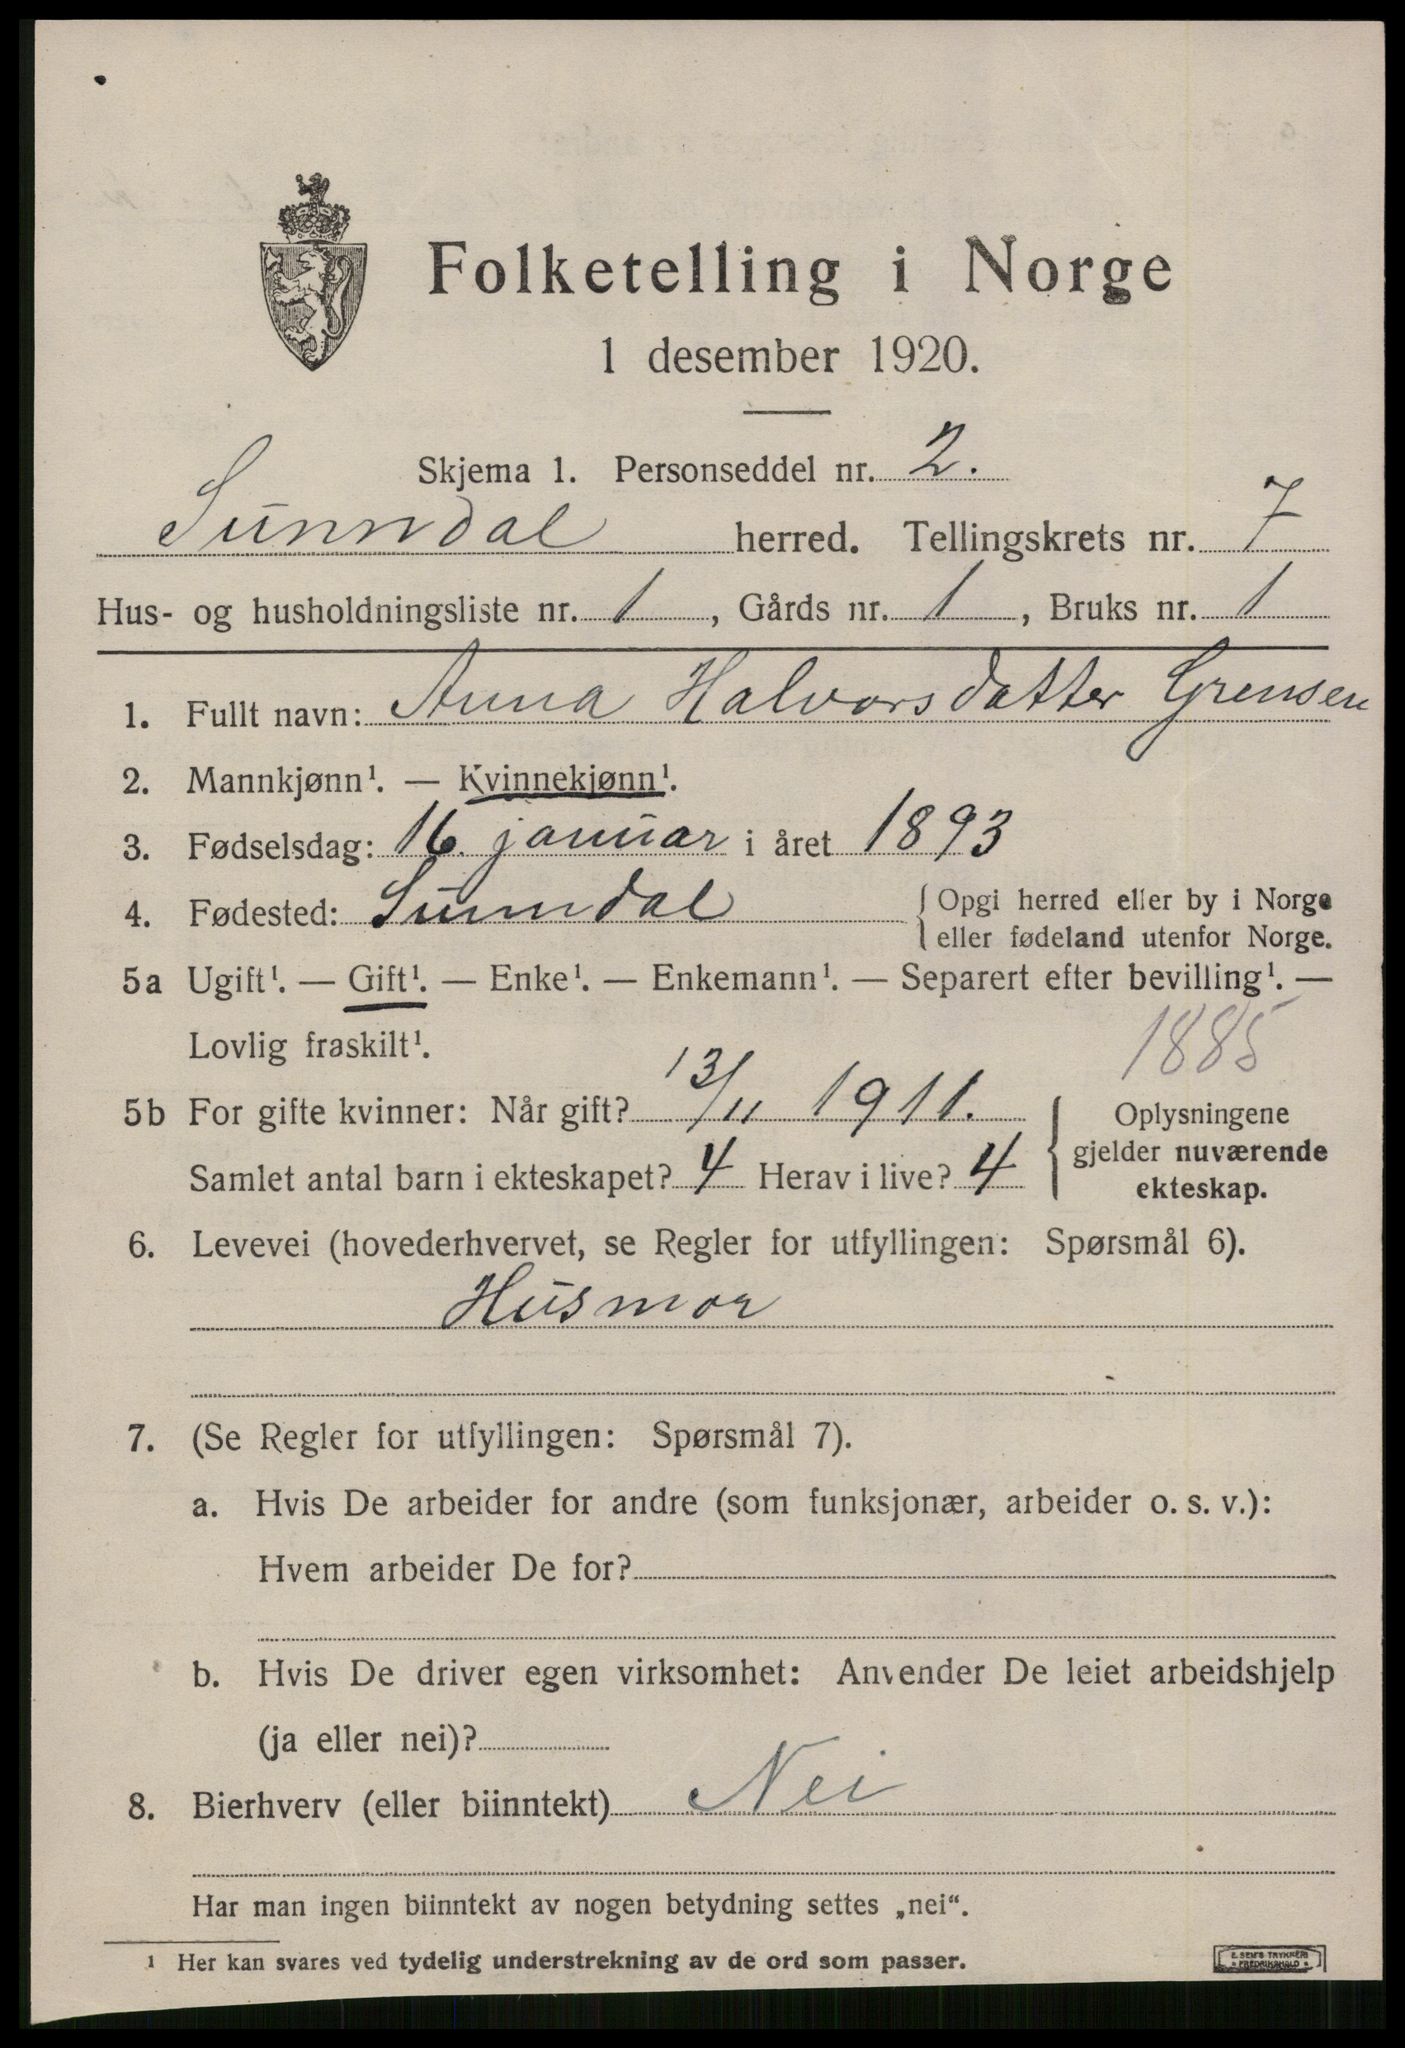 Folketelling i Norge
1 desember 1920.
Skjema 1. Personseddel nr. 2.
Sunndal herred. Tellingskrets nr. 7
Hus- og husholdningsliste nr. 1, Gårds nr. 1, Bruks nr. 1
1. Fullt navn: Anna Halvorsdatter Grensen
2. Mannkjønn¹. — Kvinnekjønn¹.
3. Fødselsdag: 16. januar i året 1893
4. Fødested: Sunndal { Opgi herred eller by i Norge
eller fødeland utenfor Norge.
5a Ugift¹. — Gift¹. — Enke¹. — Enkemann¹. — Separert efter bevilling¹. —
Lovlig fraskilt¹. 1885
5b For gifte kvinner: Når gift? 13/11 1911. { Oplysningene
gjelder nuværende
Samlet antal barn i ekteskapet? 4 Herav i live? 4 ekteskap.
6. Levevei (hovederhvervet, se Regler for utfyllingen: Spørsmål 6).
Husmor
7. (Se Regler for utfyllingen: Spørsmål 7).
a. Hvis De arbeider for andre (som funksjonær, arbeider o. s. v.):
Hvem arbeider De for?
b. Hvis De driver egen virksomhet: Anvender De leiet arbeidshjelp
(ja eller nei)?
8. Bierhverv (eller biinntekt) Nei
Har man ingen biinntekt av nogen betydning settes „nei“.
¹ Her kan svares ved tydelig understrekning av de ord som passer.
E. SEM'S TRYKKERI
FREDRIKSHALD